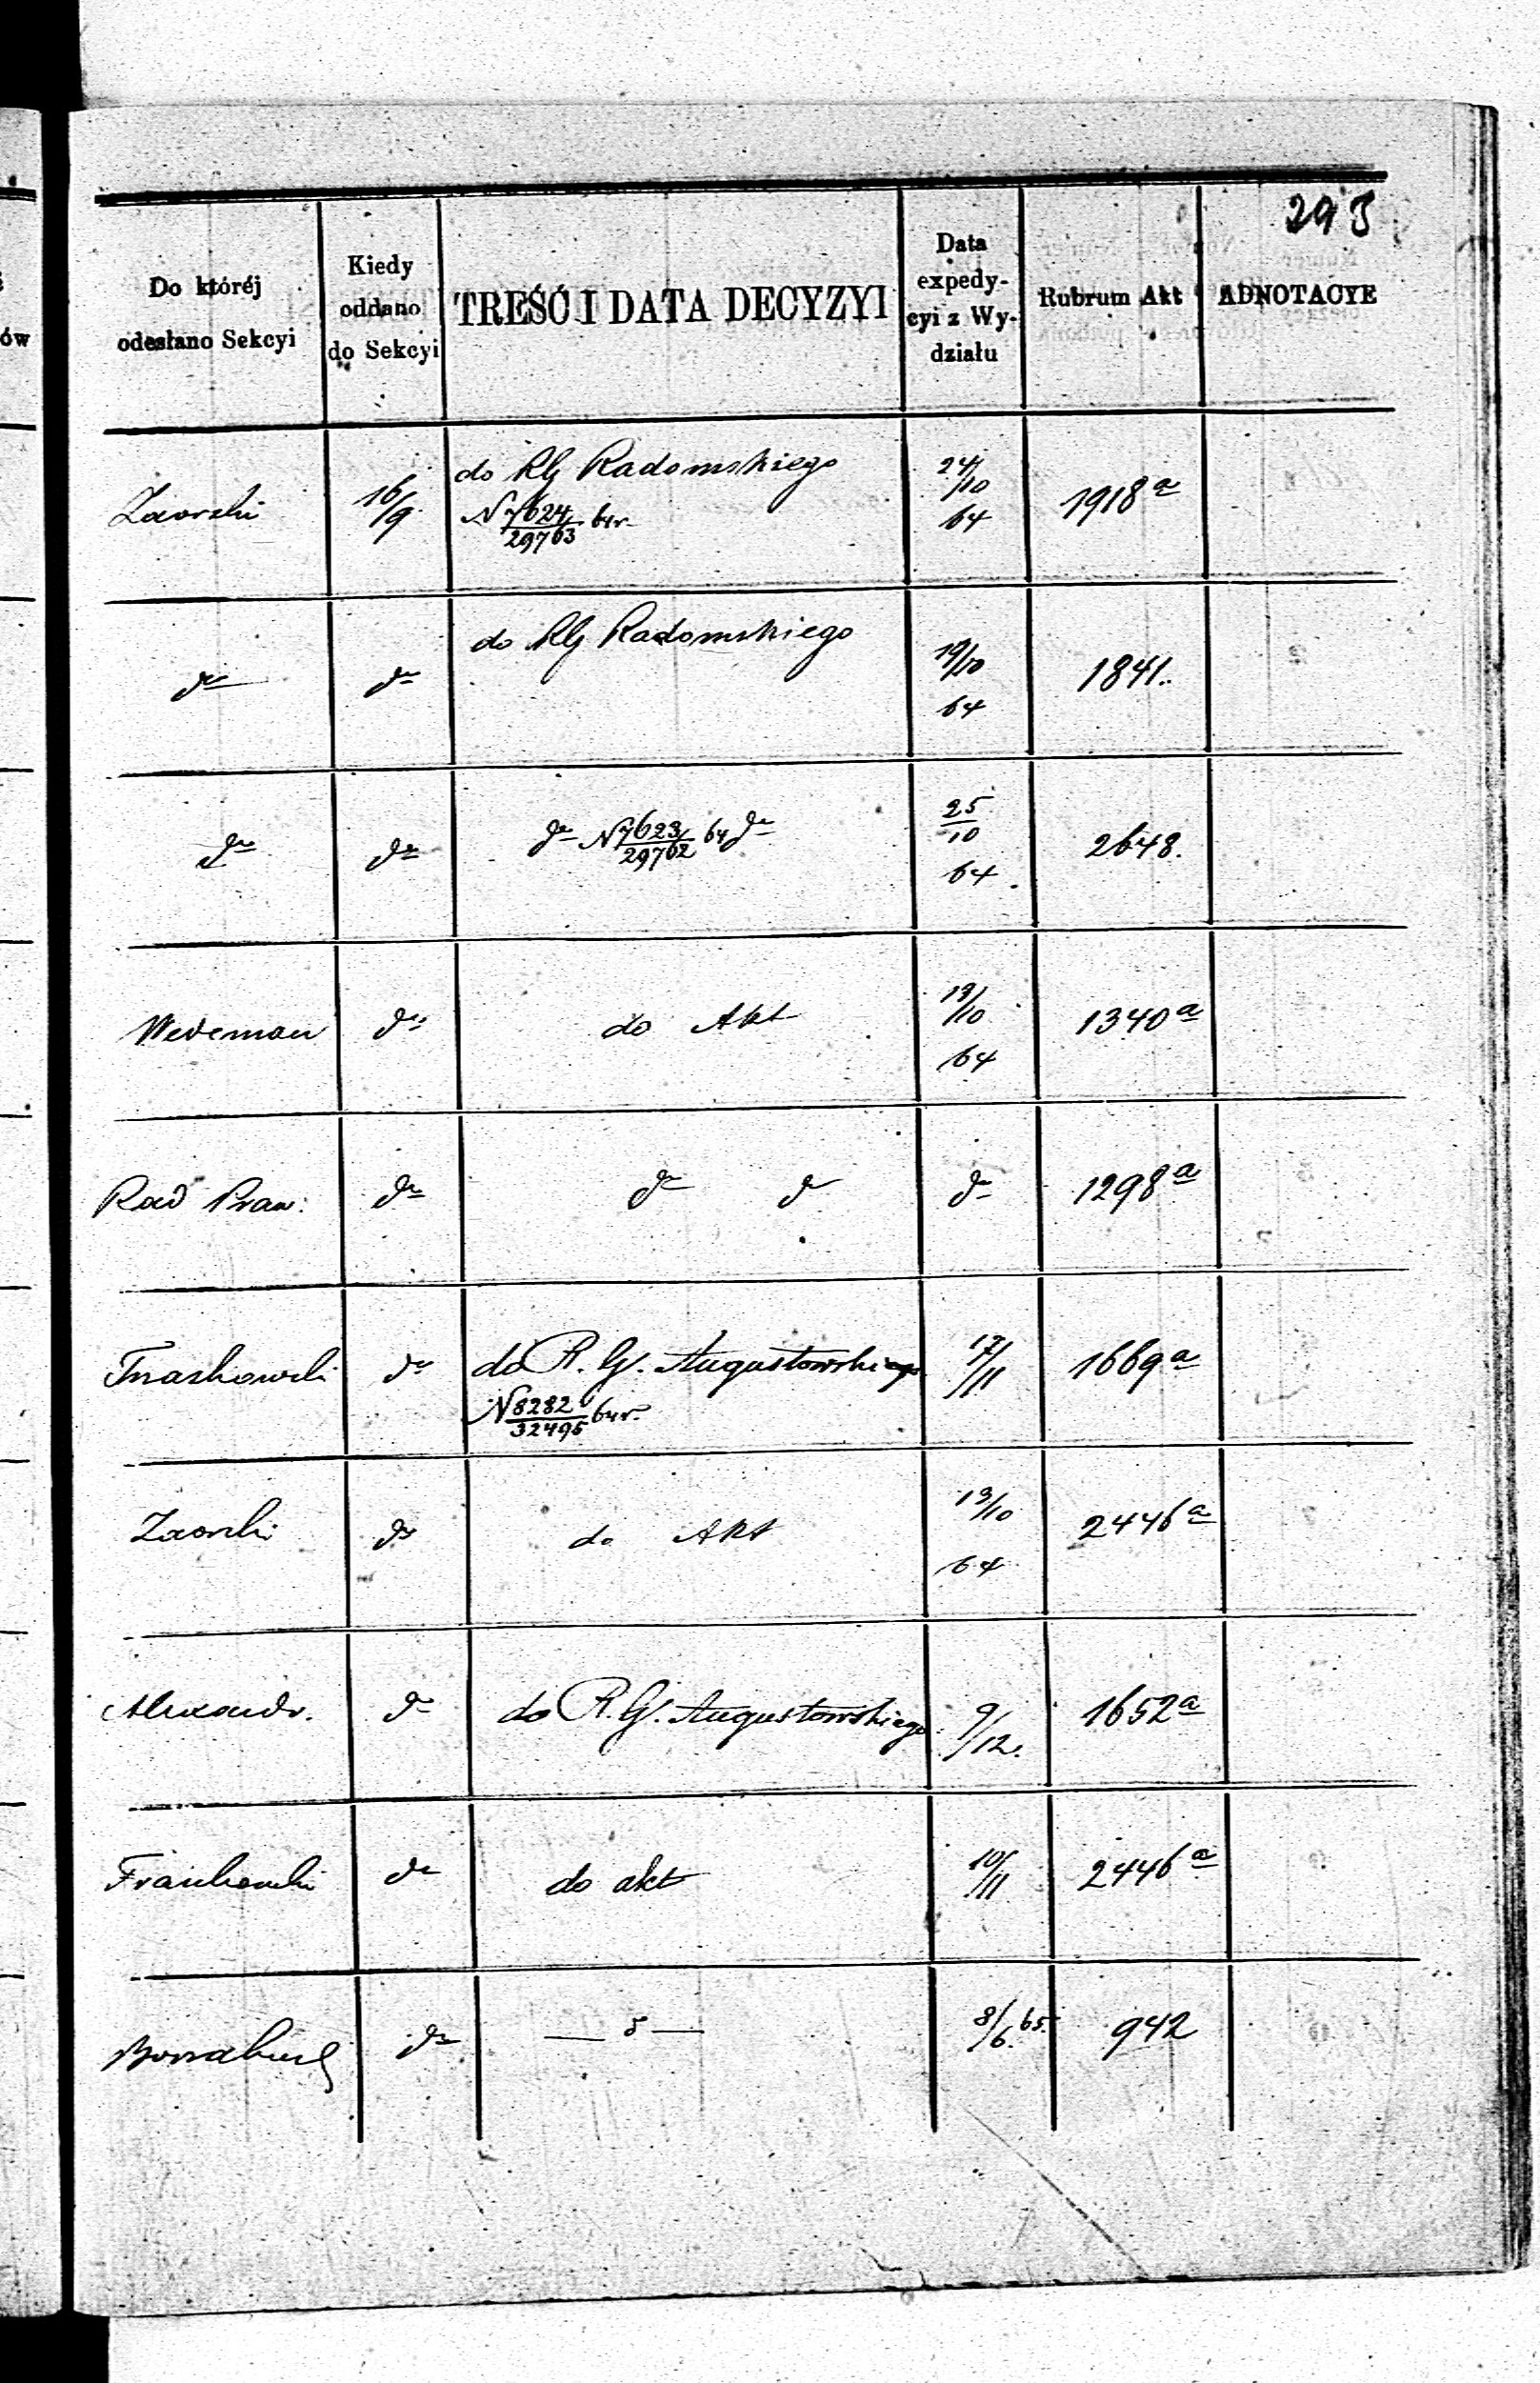 293
Do któréj odesłano Sekcyi | Kiedy oddano do Sekcyi | TREŚĆ I DATA DECYZYI | Data expedycyi z Wydziału | Rubrum Akt | ADNOTACYE
Zaorski | 16/9 | do RG Radomskiego N 7624/29763 64r. | 24/10 64 | 1918 a
do | do | do RG Radomskiego | 19/10 64 | 1841.
do | do | do N 7623/29762 64 do | 25/10 64 | 2648.
Wedeman | do | do Akt | 19/10 64 | 1340 a
Rad Praw: | do | do do | do | 1298 a
do | do R. G. Augustowskiego N 8282/32495 64r. | 17/11 | 1669 a
Zaorski | do | do Akt | 19/10 64 | 2446 a
Alexandr. | do | do R. G. Augustowskiego | 9/12. | 1652 a
do | do akt | 10/11 | 2446 a
do | 8/6. 65. | 942